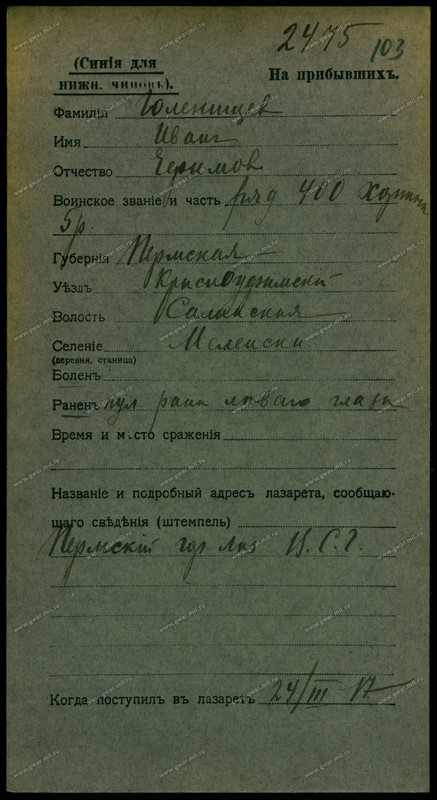 2475 103
(Синія для
нижн. чиновъ).
На прибывшихъ.
Фамилія Голенищев
Имя Иван
Отчество Ефимов
Воинское званіе и часть ряд 400 Хортиц
5 р.
Губернія Пермская
Уѣздъ Красноуфимскій
Волость
Селеніе
(деревня, станица)
Боленъ
Раненъ пул рана лѣваго глаза
Время и мѣсто сраженія
Названіе и подробный адресъ лазарета, сообщаю-
щаго свѣдѣнія (штемпель)
Пермскій гор лаз В. С. Г.
Когда поступилъ въ лазаретъ 24/III 17
www.gwar.mil.ru